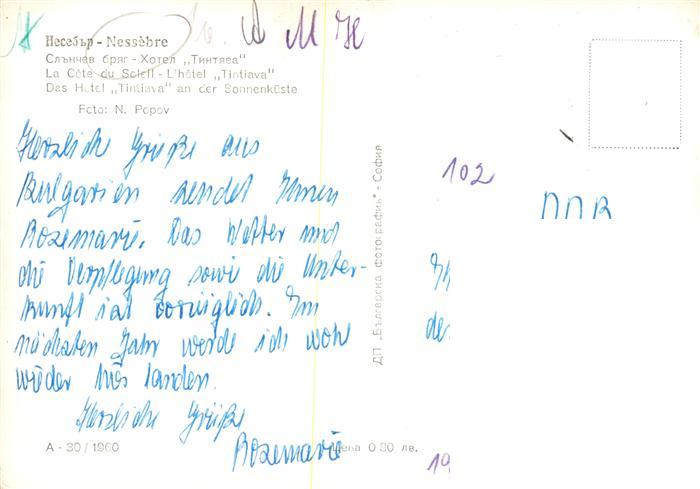 Несебър - Nessèbre
Слънчев бряг - Хотел „Тинтява"
La Côte du Soleil - L'hôtel „Tintiava"
Das Hotel „Tintiava" an der Sonnenküste
Foto: N. Popov
Herzliche Grüße aus
Bulgarien sendet Ihnen
Rosemarie. Das Wetter und
die Verpflegung sowie die Unter-
kunft ist vorzüglich. Im
nächsten Jahr werde ich wohl
wieder hier landen.
Herzliche Grüße
Rosemarie
А - 30 / 1960
Цена 0 30 лв.
ДП „Българска фотография" - София
102
DDR